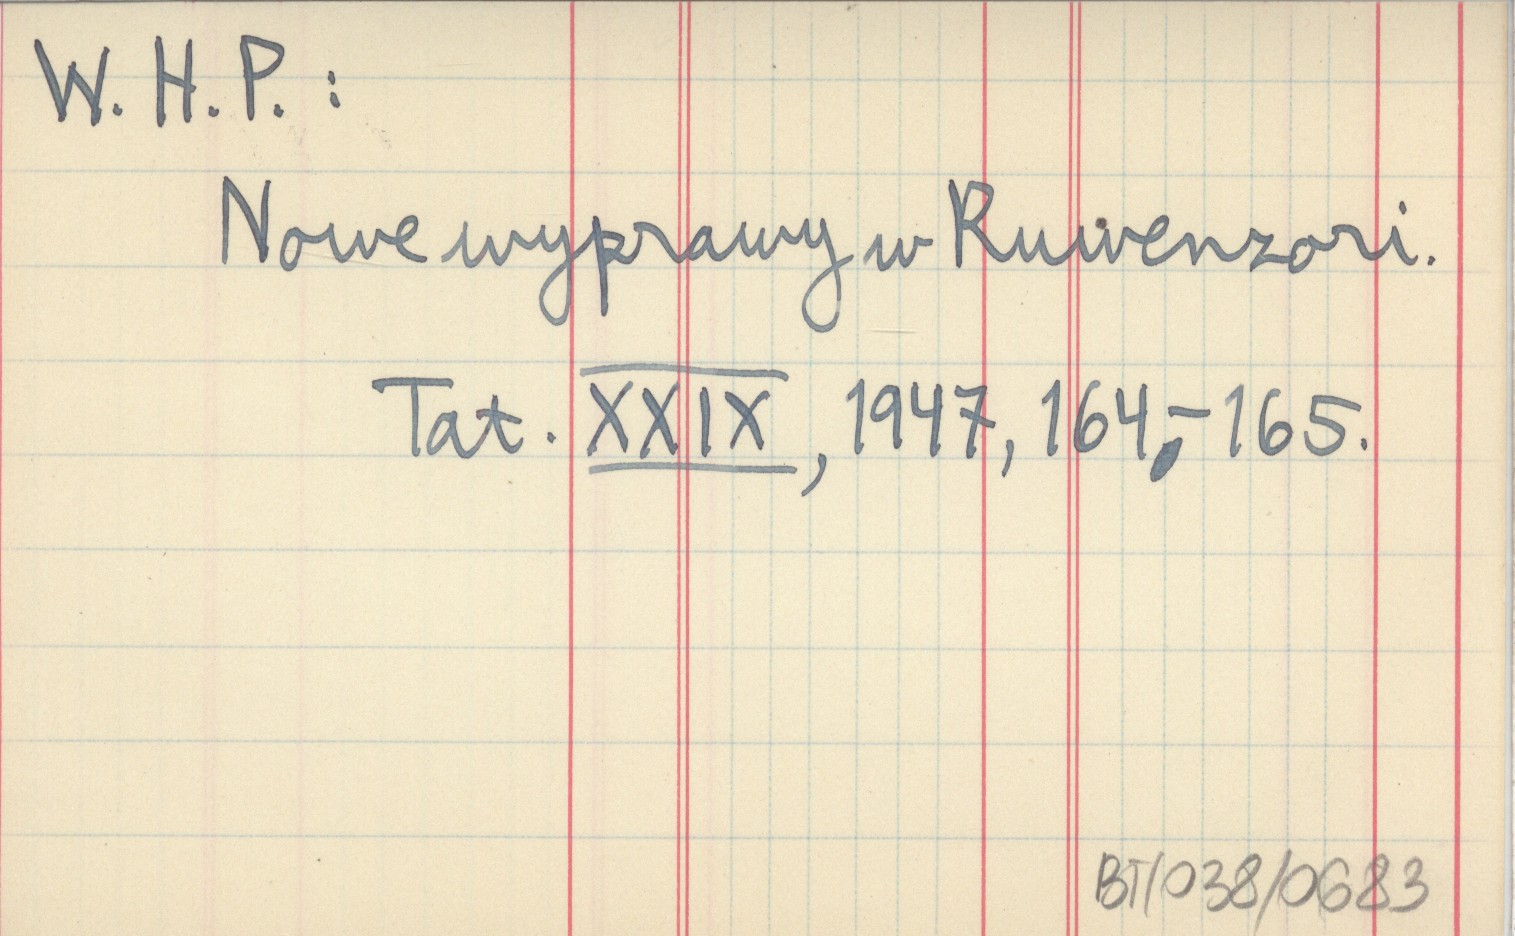 W. H. P. :
Nowe wyprawy w Ruwenzori.
Tat. XXIX, 1947, 164,-165.
BT/038/0683